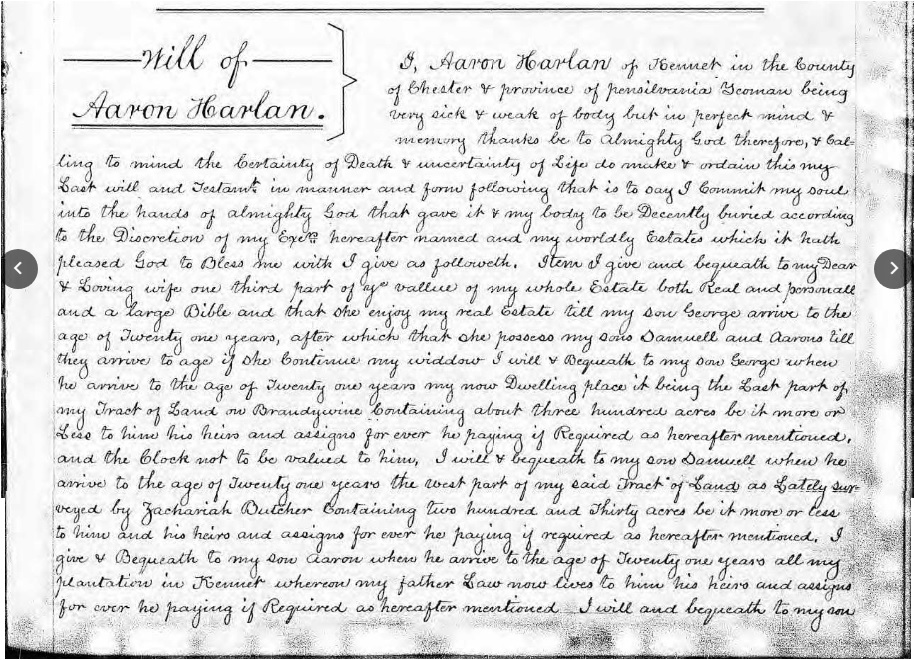 Will of
Aaron Harlan.
I, Aaron Harlan of Kennet in the County
of Chester & province of pensilvania Yeoman being
very sick & weak of body but in perfect mind &
memory thanks be to Almighty God therefore, & Cal=
ling to mind the Certainty of Death & uncertainty of Life do make & ordain this my
Last will and Testamt. in manner and form following that is to say I Commit my soul
into the hands of almighty God that gave it & my body to be Decently buried according
to the Discretion of my Exers. hereafter named and my worldly Estates which it hath
pleased God to Bless me with I give as followeth. Item I give and bequeath to my Dear
& Loving wife one third part of ye vallue of my whole Estate both Real and personall
and a Large Bible and that she enjoy my real Estate till my son George arrive to the
age of Twenty one years, after which that she possess my sons Samuell and Aarons till
they arrive to age if she Continue my widdow I will & Bequeath to my son George when
he arrive to the age of Twenty one years my now Dwelling place it being the Last part of
my Tract of Land on Brandywine Containing about three hundred acres be it more or
Less to him his heirs and assigns for ever he paying if Required as hereafter mentioned,
and the Clock not to be valued to him, I will & bequeath to my son Samuell when he
arrive to the age of Twenty one years the west part of my said Tract of Land as Lately sur=
veyed by Zachariah Butcher Containing two hundred and Thirty acres be it more or less
to him and his heirs and assigns for ever he paying if required as hereafter mentioned. I
give & Bequeath to my son Aaron when he arrive to the age of Twenty one years all my
plantation in Kennet whereon my father Law now lives to him his heirs and assigns
for ever he paying if Required as hereafter mentioned I will and bequeath to my son